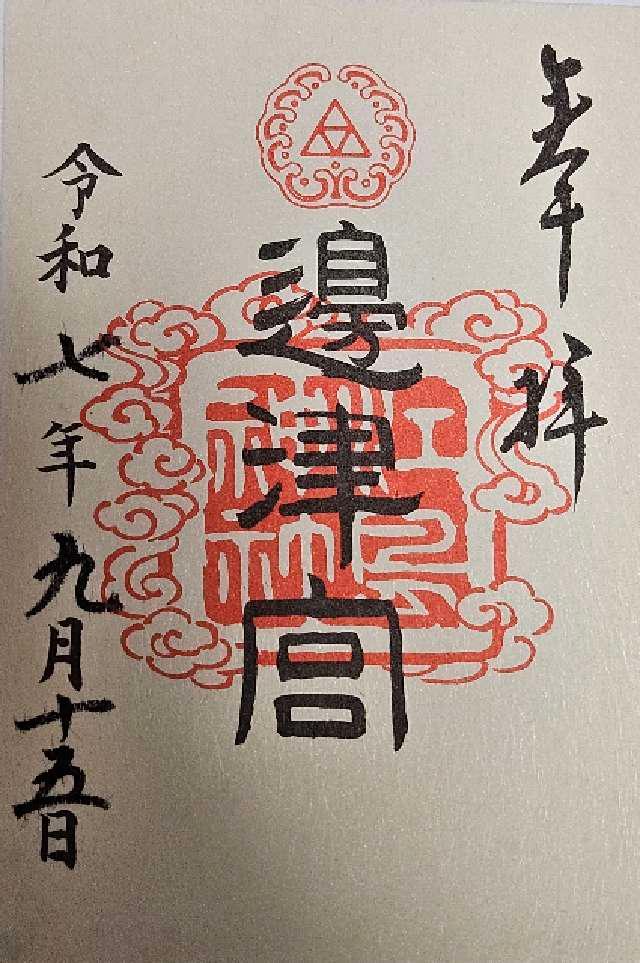 奉拝
邊津宮
令和七年九月十五日